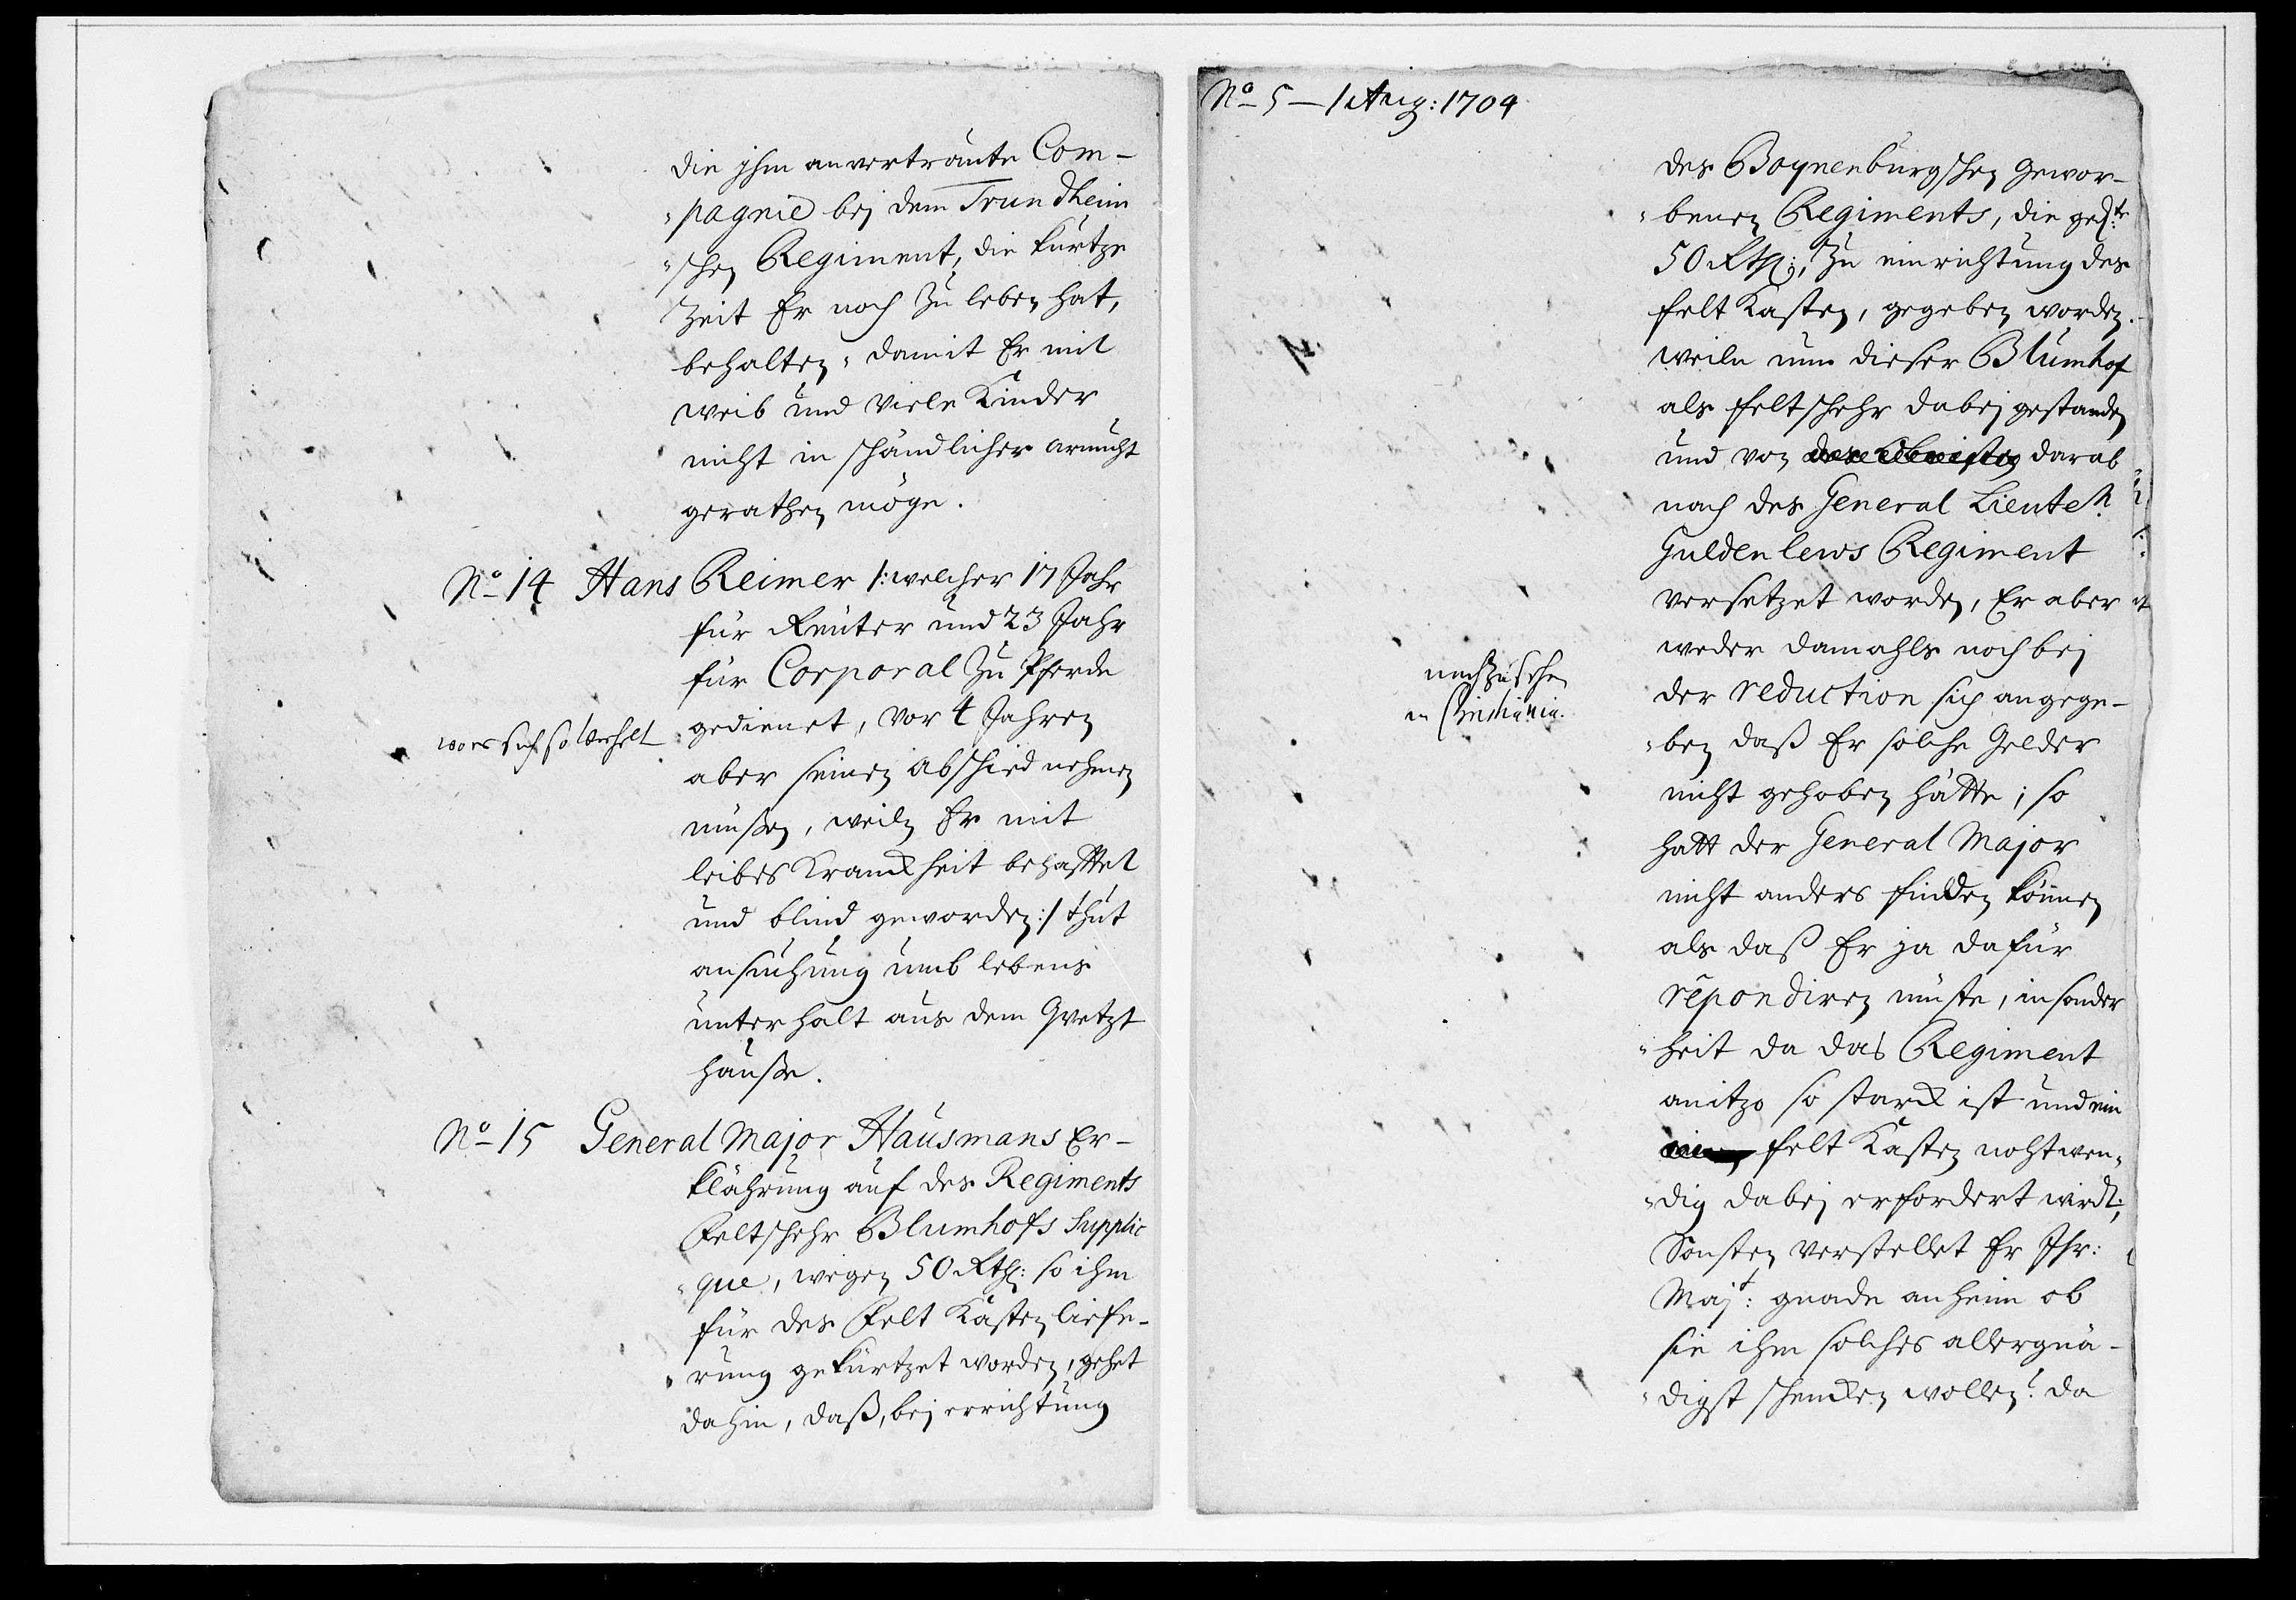 die jhm anvertraute Com-
pagnie bej dem Trundheim
schen Regiment, die kurtze
Zeit Er noch zu leben hat,
behalten, damit Er mit
weib und viele Kinder
nicht in schändlicher armuht
gerathen möge.
No 14 Hans Reimer /: welcher 17 Jahr
für Reuter und 23 Jahr
für Corporal zu Pferde
gedienet, vor 4 Jahren
wo es sich so verhelt
aber seinen abschied nehmen
müßen, weiln Er mit
leibes Kranckheit behafftet
und blind geworden :/ thut
ansuchung umb lebens
unterhalt aus dem Qvetzt
hause.
No 15 General Major Hausmans Er-
klährung auf des Regiments
Feltschehr Blumhofs Supplic
que, wegen 50 Rthl: so ihm
für des Felt Kasten liefe-
rung gekürtzet worden, gehet
dahin, daß, bej errichtung
No 5 - 1 Aug: 1704
des Boynenburgschen Gewor-
benen Regiments, die gedte
50 Rthl:, zu einrichtung des
felt Kasten, gegeben worden.
weiln nun dieser Blumhof
als feltschehr dabej gestanden
und von darab
nach des General Lieuten
Guldenlews Regiment
versetzet worden, Er aber
weder damahls noch bej
nachzusehen
in Christiania.
der reduction sich angege-
ben daß Er solche Gelder
nicht gehoben hätte; so
hatt der General Major
nicht anders finden können
als daß Er ja dafür
repondiren müste, insonder
heit da das Regiment
anitzo so starck ist und ein
felt Kasten nohtwen-
dig dabej erfordert wirdt;
Sonsten verstellet Er Ihr:
Majt: gnade anheim ob
sie ihm solches allergnä-
digst schencken wollen? da